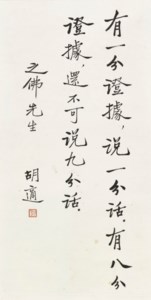 有一分證據，說一分話．有八分
證據，還不可說九分話．
之佛先生
胡適